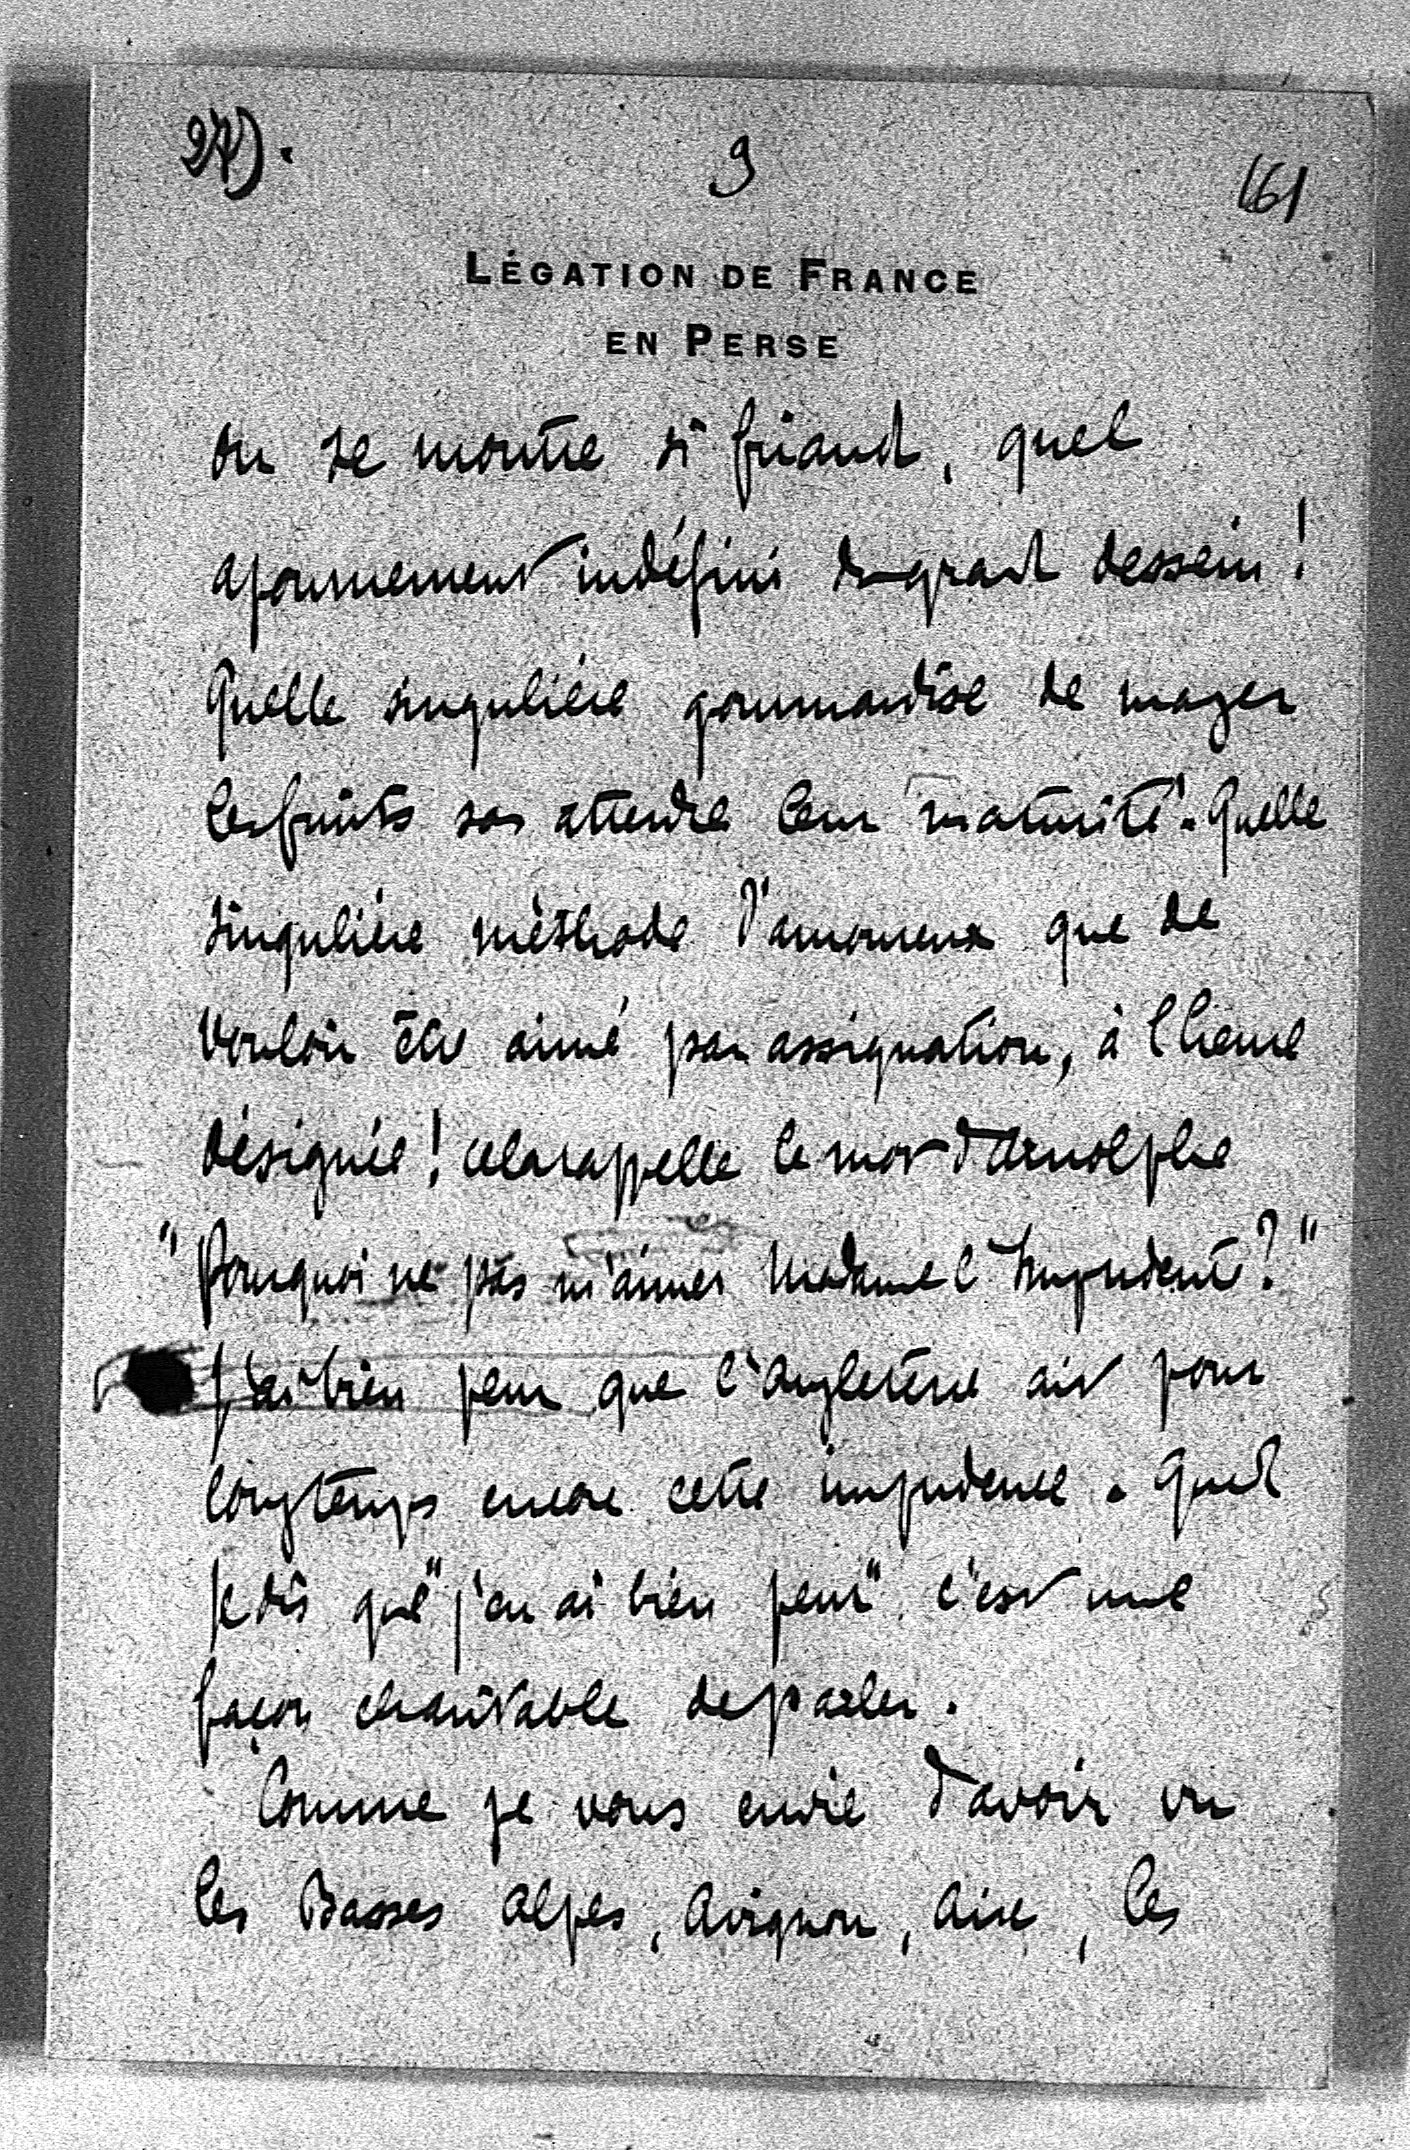 27).
9
161
LÉGATION DE FRANCE
EN PERSE
on se montre si friand, quel
ajournement indéfini du grand dessein !
Quelle singulière gourmandise de manger
les fruits sans attendre leur maturité. Quelle
singulière méthode d'amoureux que de
vouloir être aimé par assignation, à l'heure
désignée ! cela rappelle le mot d'Arnolphe
"Pourquoi ne pas m'aimer Madame l'Impudente ?"
J'ai bien peur que l'Angleterre ait pour
longtemps encore cette impudence. Quand
je dis que "j'en ai bien peur" c'est une
façon charitable de parler.
Comme je vous envie d'avoir vu
les Basses Alpes, Avignon, Aix, les